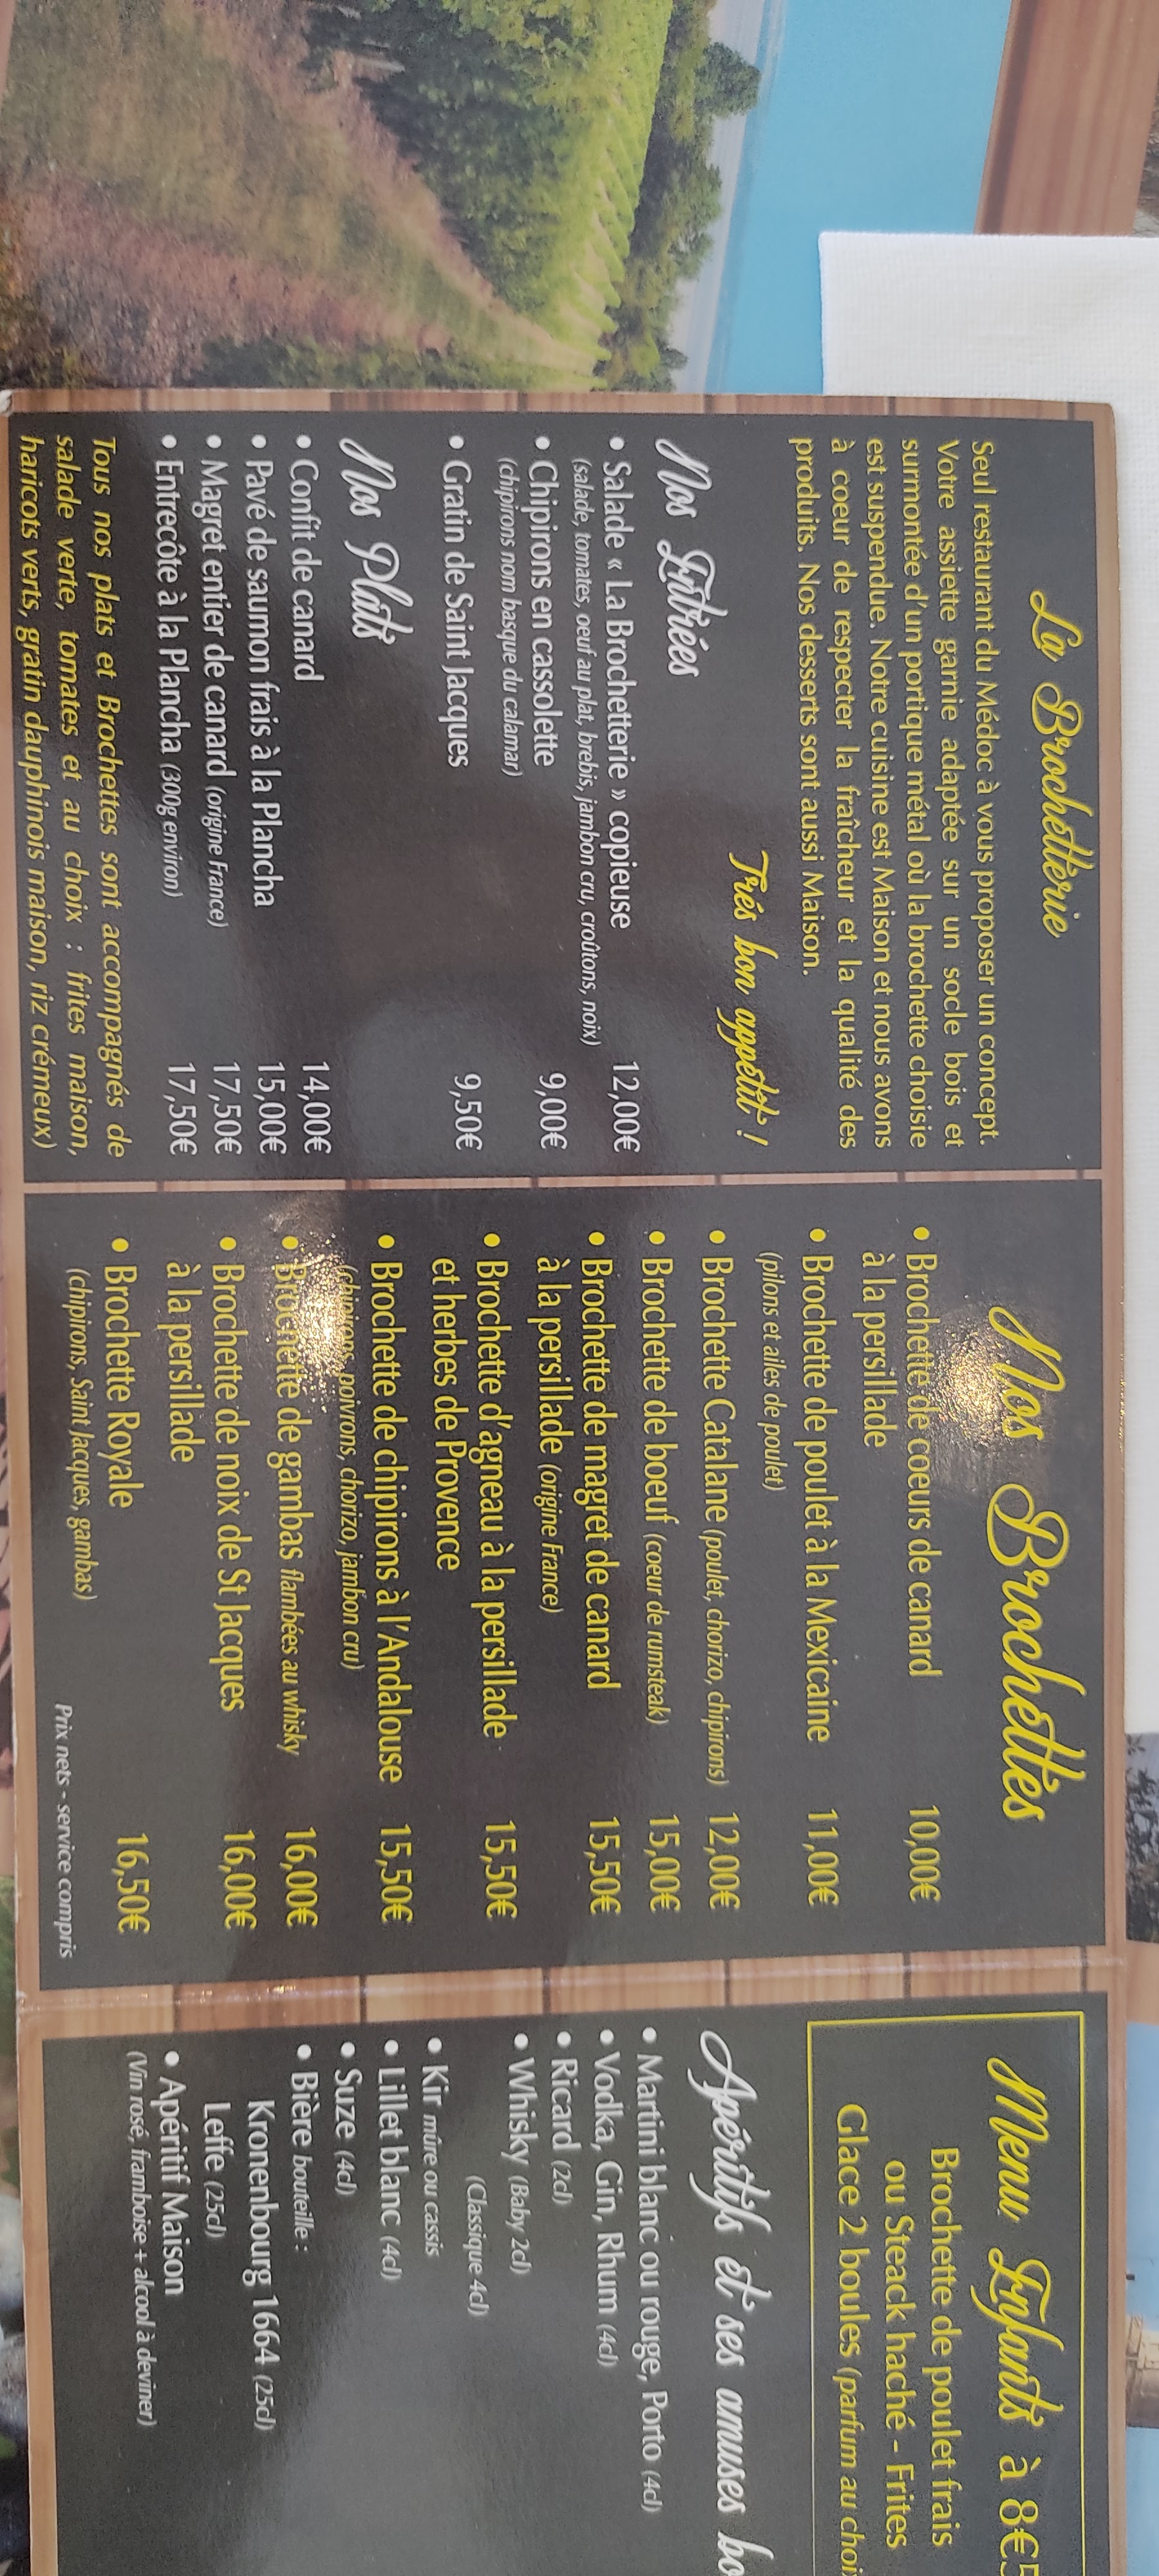 La Brochetterie
Seul restaurant du Médoc à vous proposer un concept.
Votre assiette garnie adaptée sur un socle bois et
surmontée d'un portique métal où la brochette choisie
est suspendue. Notre cuisine est Maison et nous avons
à coeur de respecter la fraîcheur et la qualité des
produits. Nos desserts sont aussi Maison.
Trés bon appétit !
Nos Entrées
• Salade « La Brochetterie » copieuse 12,00€
(salade, tomates, oeuf au plat, brebis, jambon cru, croûtons, noix)
• Chipirons en cassolette 9,00€
(chipirons nom basque du calamar)
• Gratin de Saint Jacques 9,50€
Nos Plats
• Confit de canard 14,00€
• Pavé de saumon frais à la Plancha 15,00€
• Magret entier de canard (origine France) 17,50€
• Entrecôte à la Plancha (300g environ) 17,50€
Tous nos plats et Brochettes sont accompagnés de
salade verte, tomates et au choix : frites maison,
haricots verts, gratin dauphinois maison, riz crémeux)
Nos Brochettes
• Brochette de coeurs de canard 10,00€
à la persillade
• Brochette de poulet à la Mexicaine 11,00€
(pilons et ailes de poulet)
• Brochette Catalane (poulet, chorizo, chipirons) 12,00€
• Brochette de boeuf (coeur de rumsteak) 15,00€
• Brochette de magret de canard 15,50€
à la persillade (origine France)
• Brochette d'agneau à la persillade 15,50€
et herbes de Provence
• Brochette de chipirons à l'Andalouse 15,50€
(chipirons, poivrons, chorizo, jambon cru)
• Brochette de gambas flambées au whisky 16,00€
• Brochette de noix de St Jacques 16,00€
à la persillade
• Brochette Royale 16,50€
(chipirons, Saint Jacques, gambas)
Prix nets - service compris
Menu Enfants à 8€5
Brochette de poulet frais
ou Steack haché - Frites
Glace 2 boules (parfum au choi
Apéritifs et ses amuses bo
• Martini blanc ou rouge, Porto (4cl)
• Vodka, Gin, Rhum (4cl)
• Ricard (2cl)
• Whisky (Baby 2cl)
(Classique 4cl)
• Kir mûre ou cassis
• Lillet blanc (4cl)
• Suze (4cl)
• Bière bouteille :
Kronenbourg 1664 (25cl)
Leffe (25cl)
• Apéritif Maison
(Vin rosé, framboise + alcool à deviner)